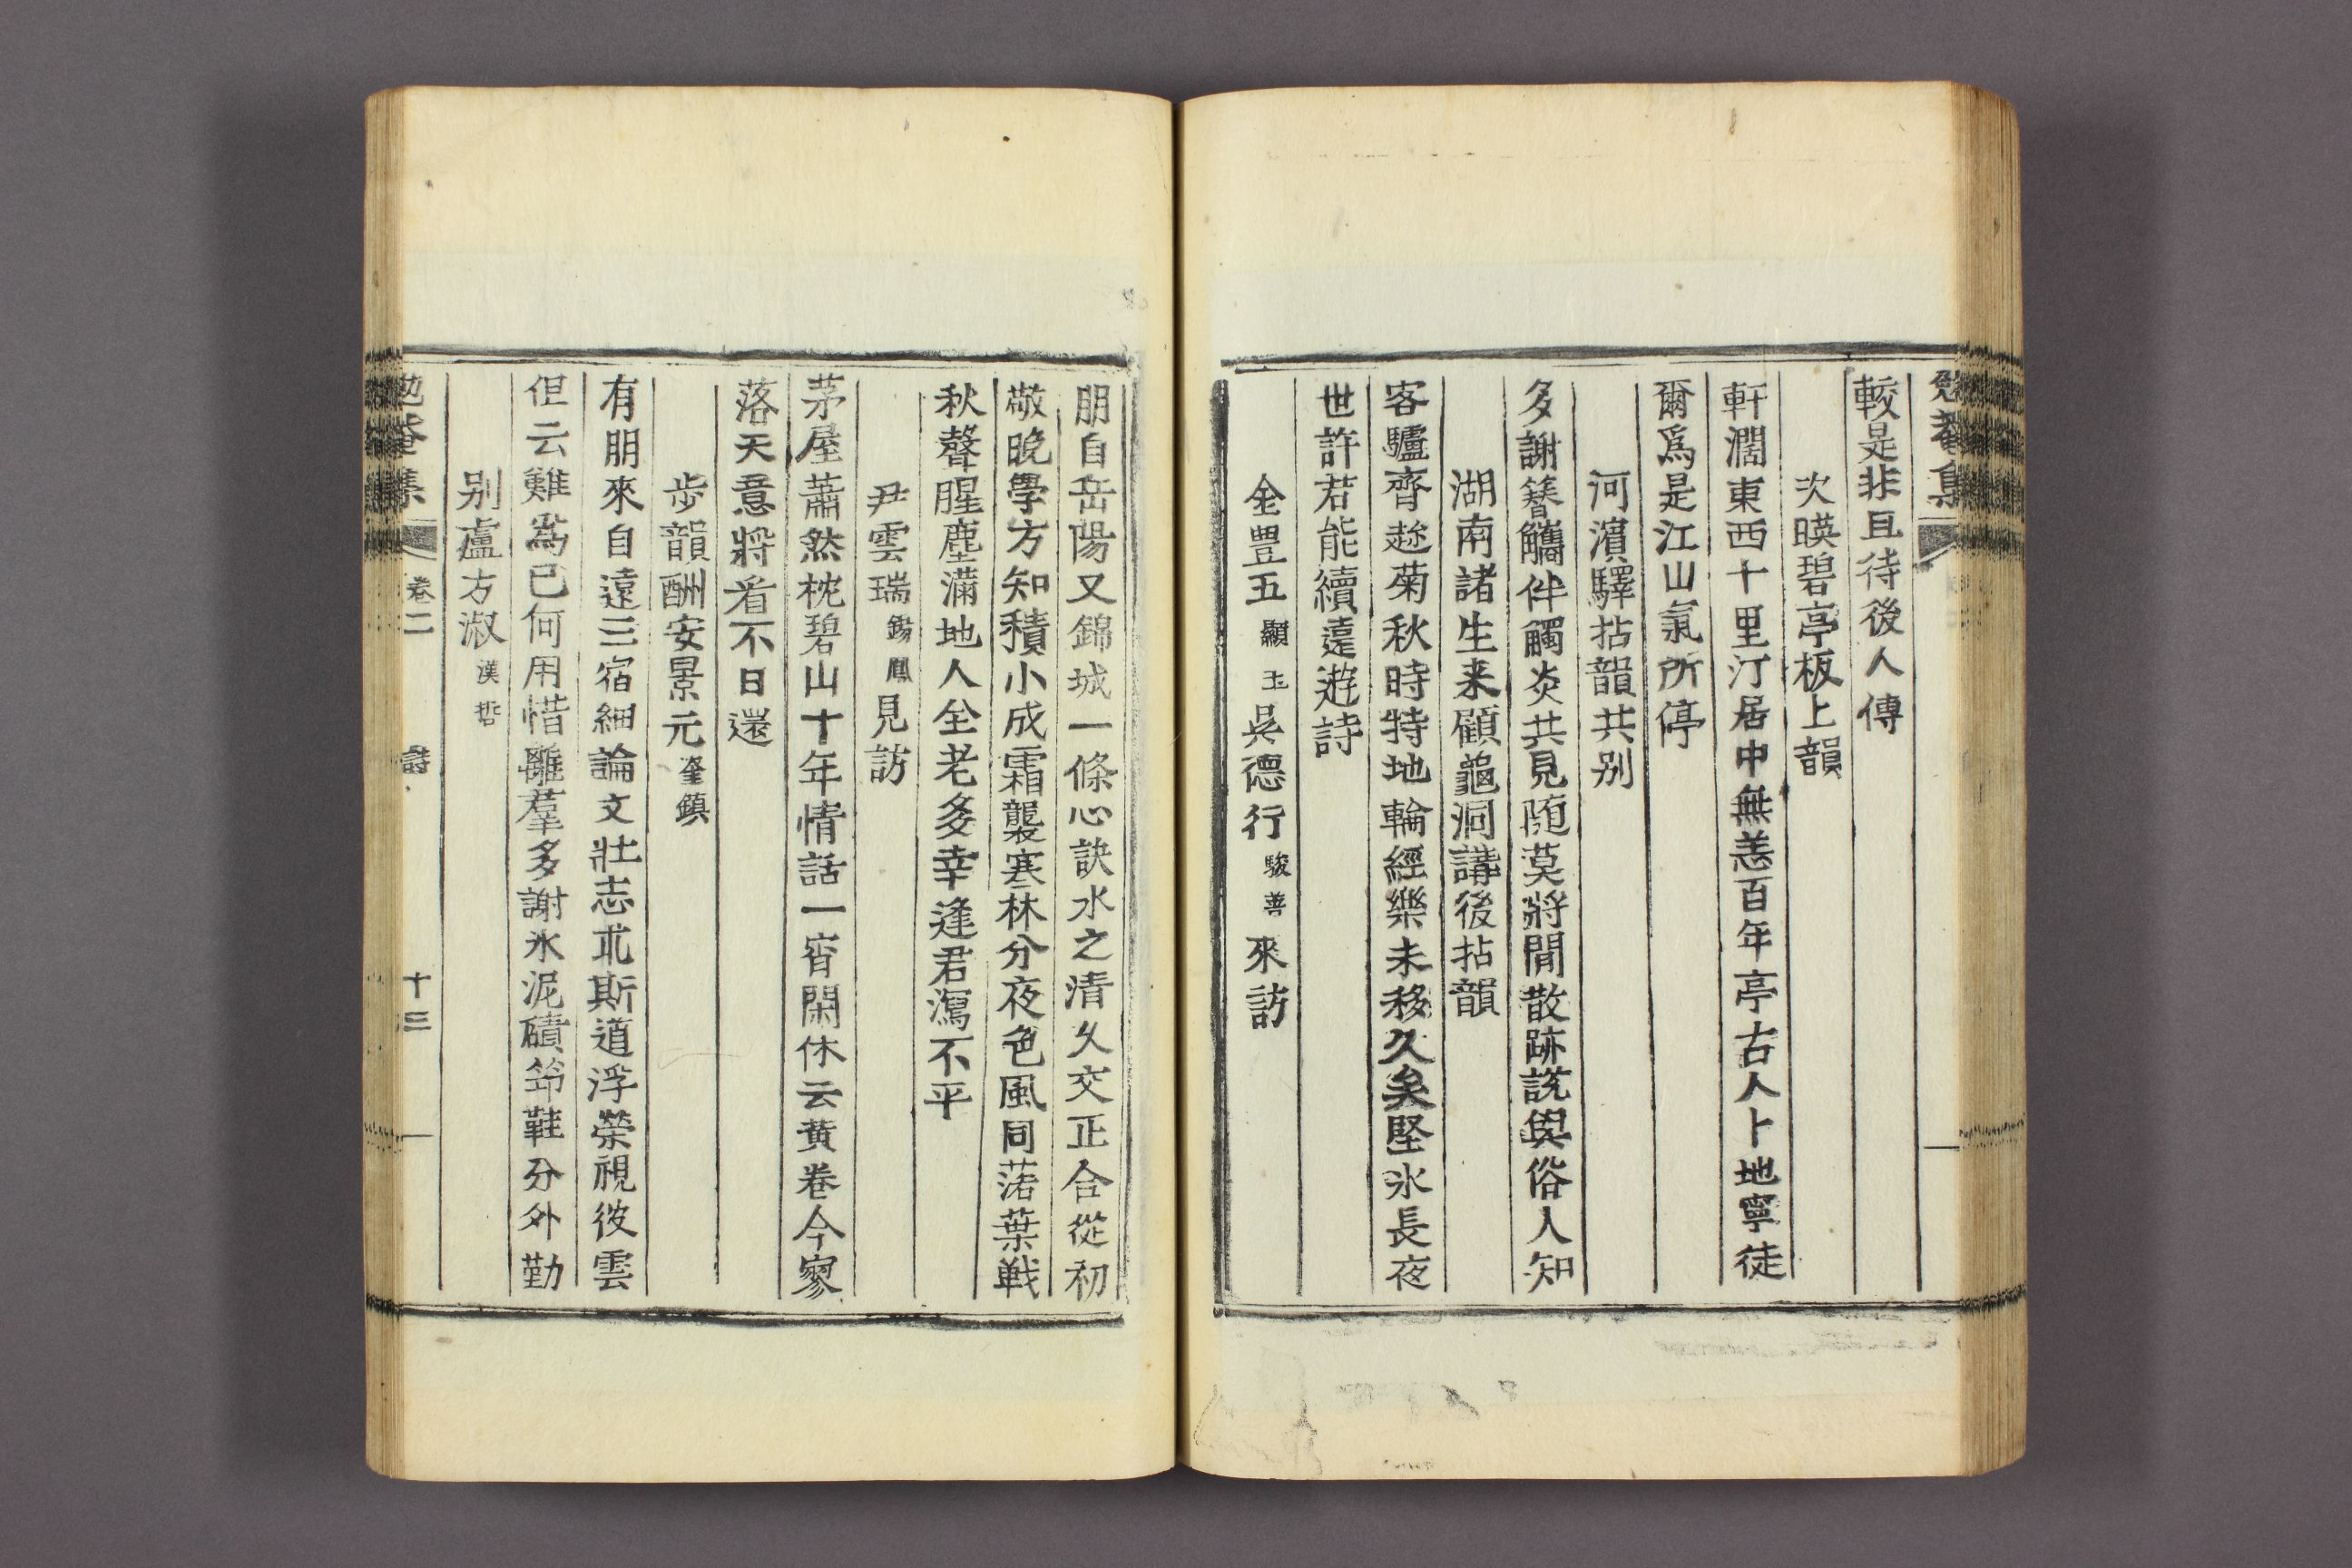 較是非且待後人傳
次暎碧亭板上韻
軒濶東西十里汀居中無恙百年亭古人卜地寧徒
爾爲是江山氣所停
河濱驛拈韻共别
多謝簦觿伴觸炎共見随莫將閒散跡説與俗人知
湖南諸生来顧龜洞講後拈韻
客驢齊趂菊秋時特地輪經樂未移久矣堅氷長夜
世許若能續遠遊詩
金豊五顯玉吳德行駿善來訪
朋自岳陽又錦城一條心訣水之清久交正合從初
敬晩學方知積小成霜襲寒林分夜色風同落葉戦
秋聲腥塵滿地人全老多幸逢君瀉不平
尹雲瑞錫鳳見訪
茅屋蕭然枕碧山十年情話一宵閑休云黄卷今寥
落天意將看不日還
步韻酬安景元奎鎮
有朋來自遠三宿細論文壯志求斯道浮榮視彼雲
但云難爲已何用惜離羣多謝氷泥磧笻鞋分外勤
别盧方淑漢哲
卷二 詩 十三